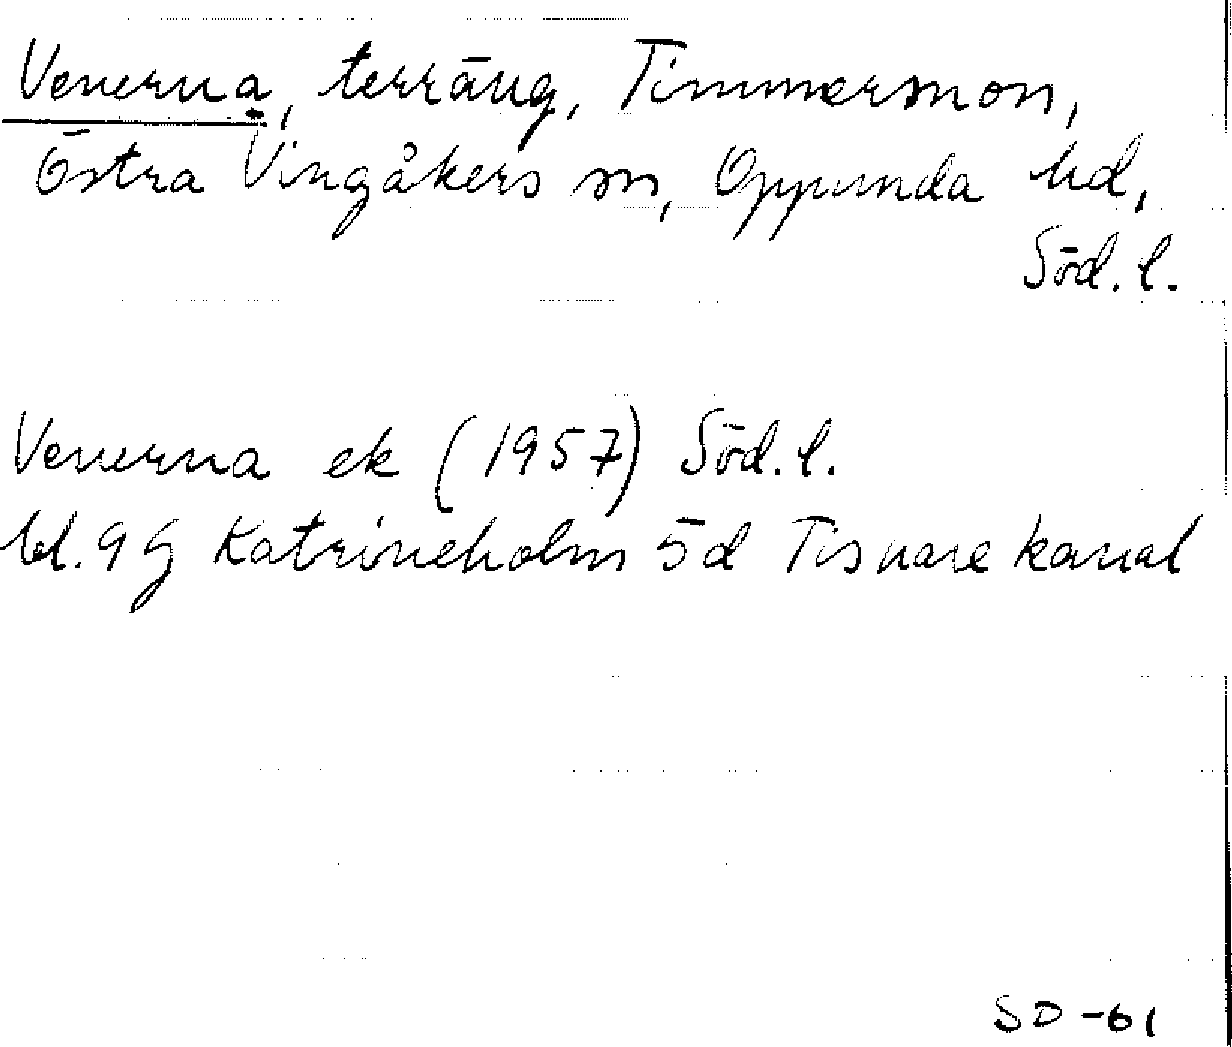 Venerna, terräng, Timmersmon,
Östra Vingåkers sn, Oppunda hd,
Söd. l.
Venerna ek (1957) Söd. l.
bl. 9 G Katrineholm 5d Tisnare kanal
SD-61